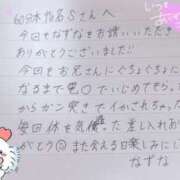 60分本指名Sさんへ
今回もなずなをお誘いいただき
ありがとうございました!
今回もお兄さんにぐちょぐちょに
なるまで乳〇でいじめてもらっ
からガン突きでイかされちゃった
毎回体を気使った差し入れあり
がとう また会える日楽しみにし
なずな